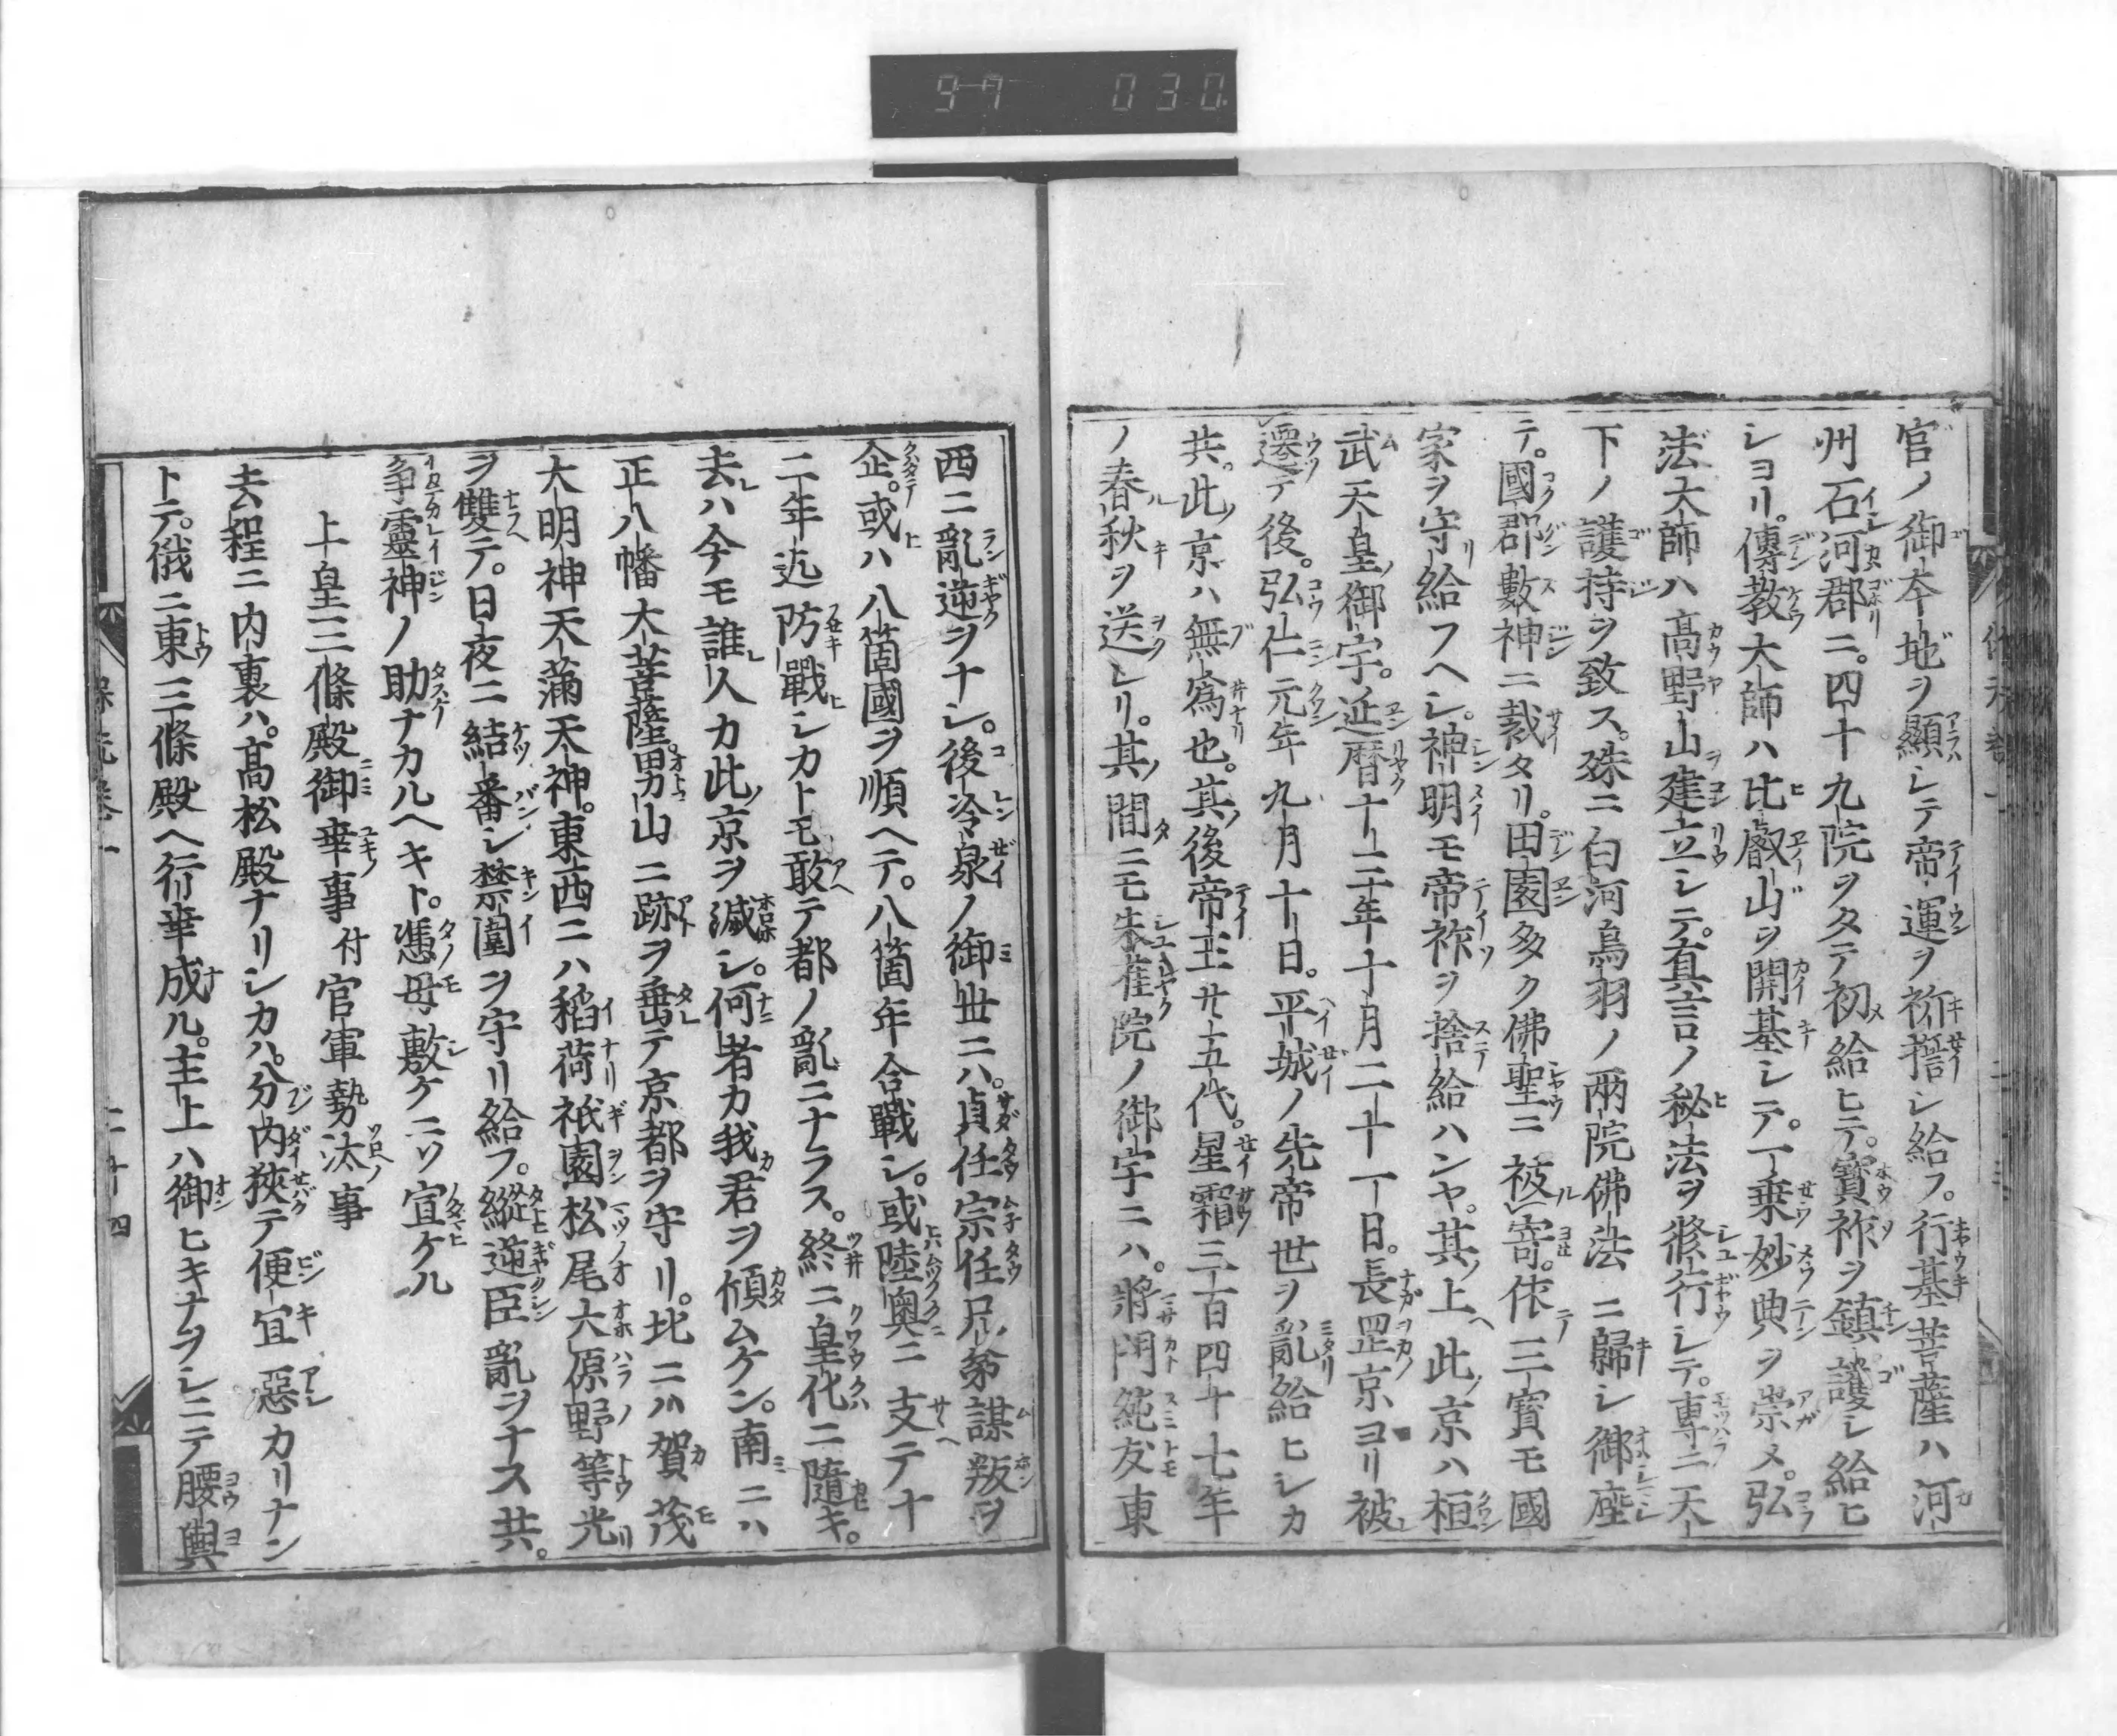 官ノ御本地ヲ顯シテ帝運ヲ祈誓シ給フ。行基菩薩ハ河
州石河郡ニ。四十九院ヲタテ初給ヒテ。寶祚ヲ鎮護シ給ヒ
シヨリ。傳教大師ハ比叡山ヲ開基シテ。一乗妙典ヲ崇メ。弘
法大師ハ高野山建立シテ。真言ノ秘法ヲ修行シテ。專ニ天
下ノ護持ヲ致ス。殊ニ白河鳥羽ノ兩院佛法ニ歸シ御座
テ。國郡數神ニ裁タリ。田園多ク佛聖ニ被寄。依三寳モ國
家ヲ守給フヘシ。神明モ帝祚ヲ捨給ハンヤ。其上此京ハ桓
武天皇御宇。延暦十三年十月二十一日。長罡京ヨリ被
遷テ後。弘仁元年九月十日。平城ノ先帝世ヲ亂給ヒシカ
共。此京ハ無為也。其後帝王廿五代。星霜三百四十七年
ノ春秋ヲ送レリ。其間ニモ朱雀院ノ御宇ニハ。將門純友東
西ニ亂逆ヲナシ。後冷泉ノ御世ニハ。貞任宗任兄弟謀叛ヲ
企。或ハ八箇國ヲ順ヘテ。八箇年合戰シ。或陸奥ニ支テ十
二年迄防戰シカトモ敢テ都ノ亂ニナラス。終ニ皇化ニ隨キ。
去ハ今モ誰人カ此京ヲ滅シ。何者カ我君ヲ傾ムケン。南ニハ
正八幡大菩薩。男山ニ跡ヲ垂テ京都ヲ守リ。北ニハ賀茂
大明神天滿天神。東西ニハ稻荷祇園松尾大原野等光
ヲ雙テ。日夜ニ結番シ禁闈ヲ守リ給フ。縱逆臣亂ヲナス共。
争靈神ノ助ナカルヘキト。憑母敷ケニソ宣ケル
上皇三條殿御幸事付官軍勢汰事
去程ニ内裏ハ。髙松殿ナリシカハ。分内狹テ便宜惡カリナン
トテ。俄ニ東三條殿ヘ行幸成ル。主上ハ御ヒキナヲシニテ腰輿
二十四